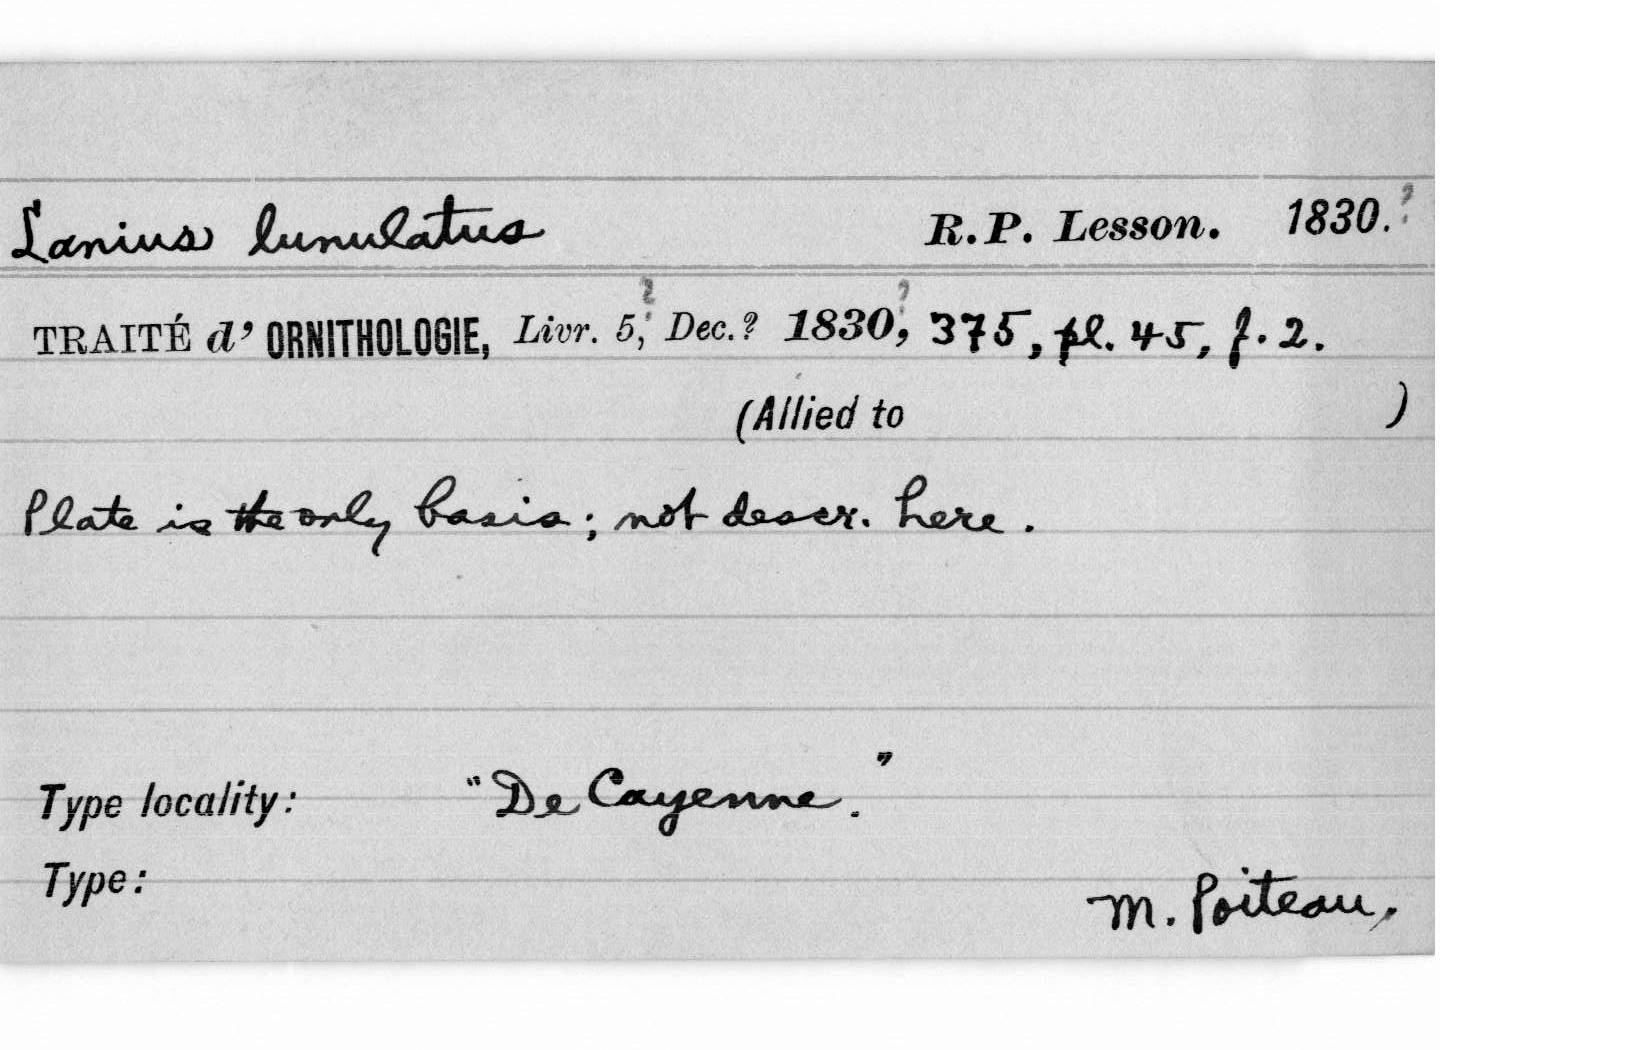 Lanius lunulatus R.P. Lesson. 1830.?
TRAITÉ d' ORNITHOLOGIE, Livr. 5,? Dec.? 1830,? 375, pl. 45, f. 2.
(Allied to )
Plate is the only basis; not descr. here.
Type locality: "De Cayenne."
Type:
M. Poiteau.